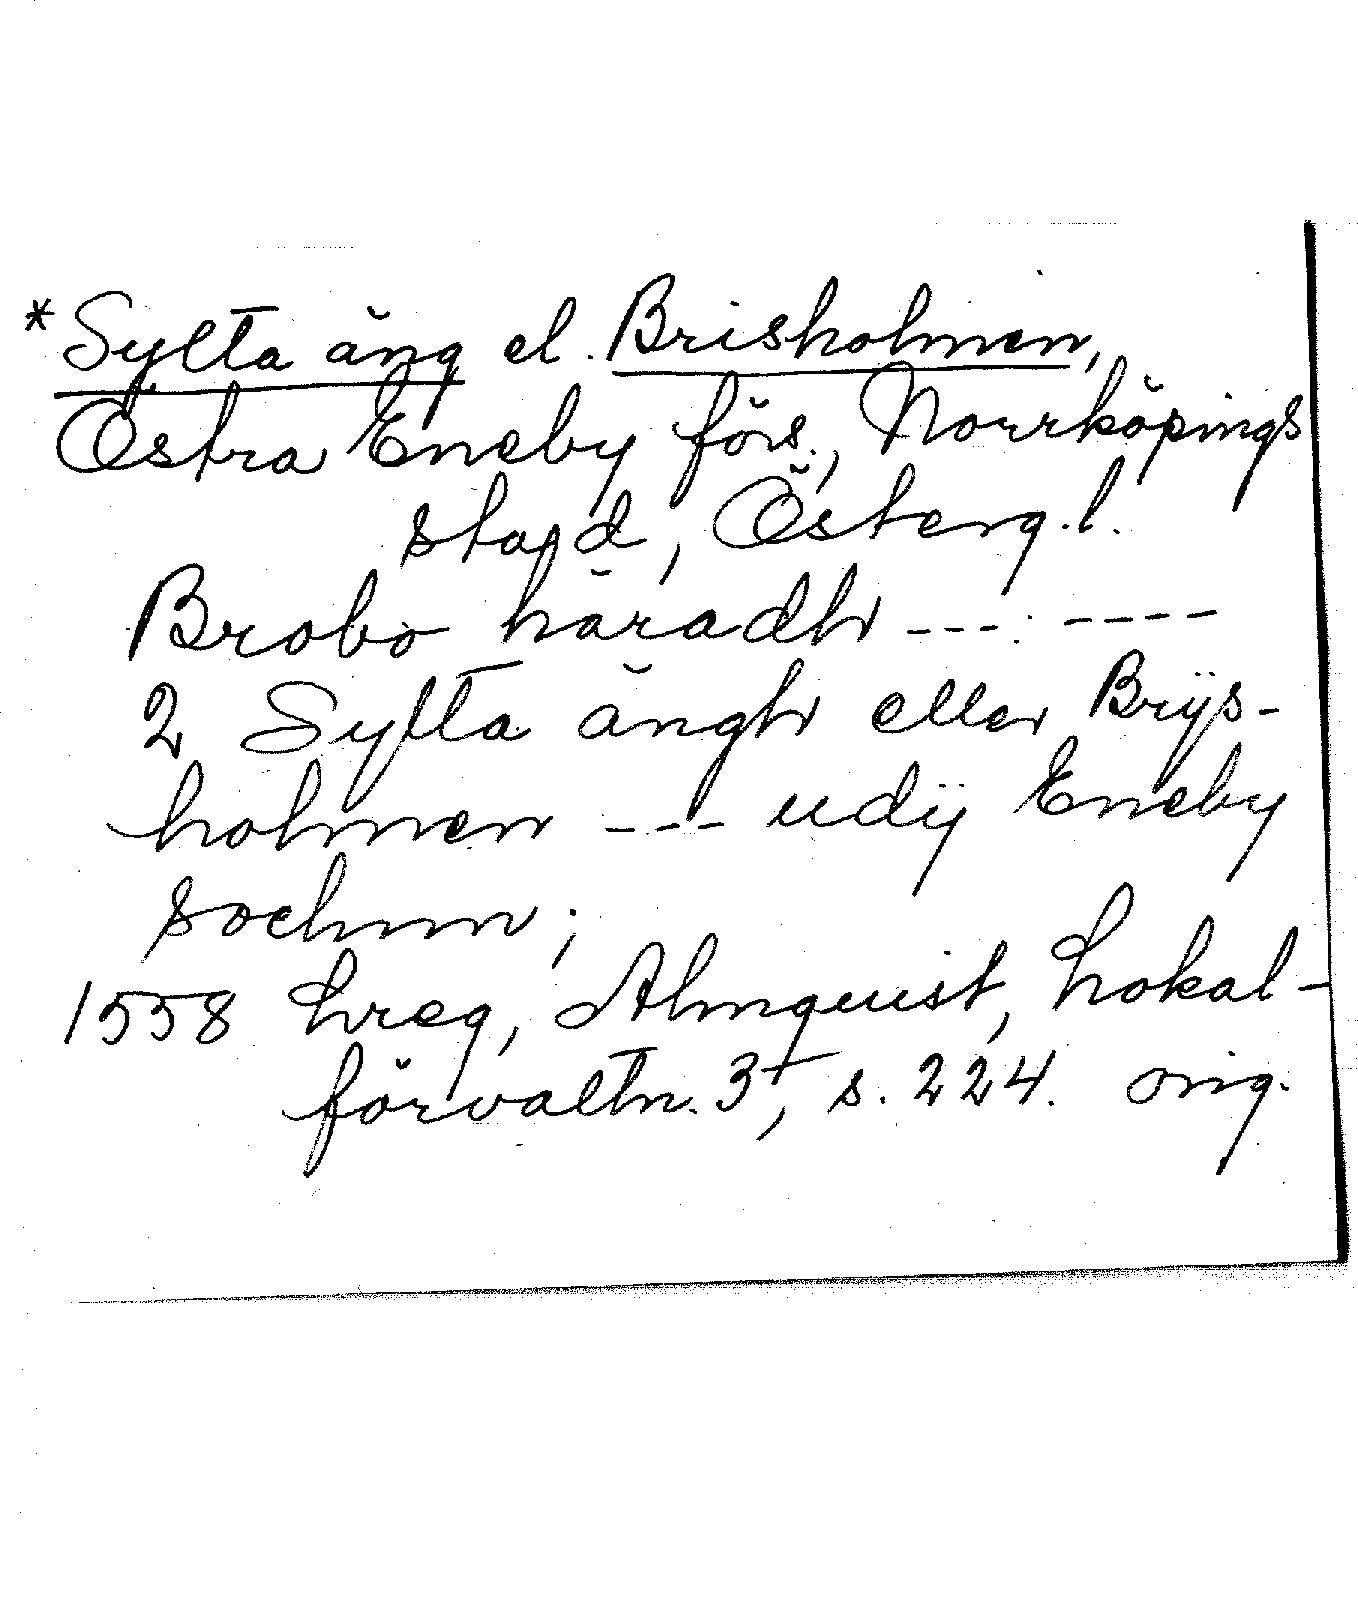 *Sylta äng el. Brisholmen,
Östra Eneby förs., Norrköpings
stad, Österg. l.
Brobo häradh ---: ----
2 Sylta ängh eller Brÿs-
holmen --- udÿ Eneby
sochnn;
1558 Lreg, Almquist, Lokal-
förvaltn. 3, s. 224. orig.